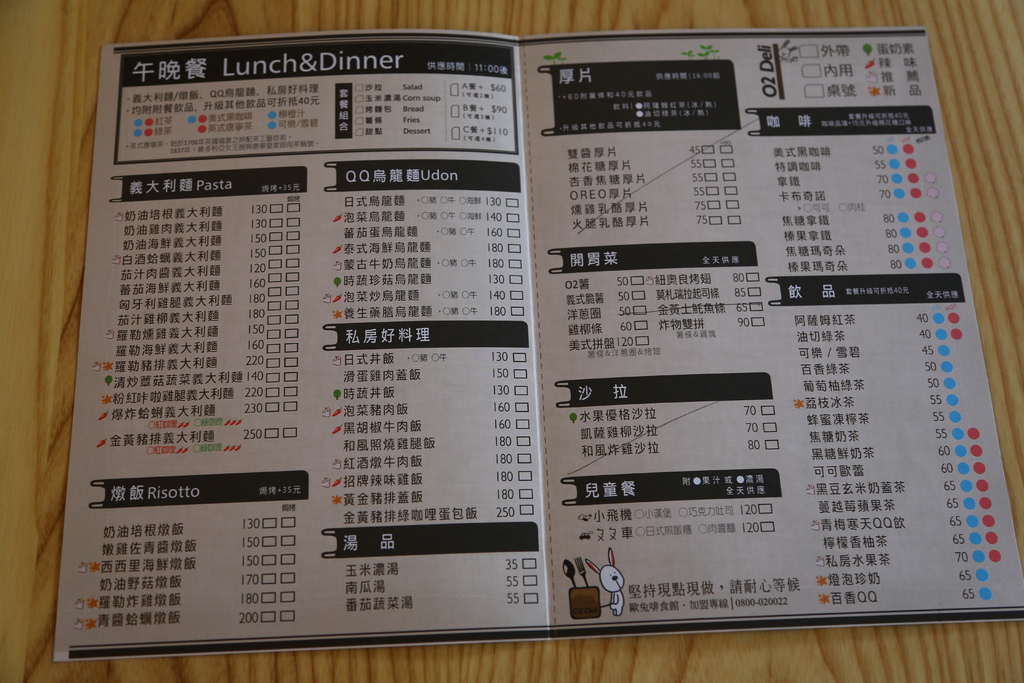 午晚餐 Lunch&Dinner 供應時間｜11:00後
·義大利麵/燉飯、QQ烏龍麵、私房好料理
·均附附餐飲品、升級其他飲品可折抵40元
紅茶 美式黑咖啡 柳橙汁
綠茶 英式唐寧茶 可樂/雪碧
套餐組合
沙拉 Salad
玉米濃湯 Corn soup
烤麵包 Bread
薯條 Fries
甜點 Dessert
A餐+ $60
B餐+ $90
C餐+$110
義大利麵 Pasta 焗烤+35元
焗烤
奶油培根義大利麵 130
奶油雞肉義大利麵 130
奶油海鮮義大利麵 150
白酒蛤蠣義大利麵 150
茄汁肉醬義大利麵 120
蕃茄海鮮義大利麵 160
匈牙利雞腿義大利麵 180
茄汁雞柳義大利麵 180
羅勒燻雞義大利麵 150
羅勒海鮮義大利麵 160
羅勒豬排義大利麵 220
清炒蕈菇蔬菜義大利麵 140
粉紅咔啦雞腿義大利麵 220
爆炸蛤蜊義大利麵 230
紅咖哩 綠咖哩
金黃豬排義大利麵 250
紅咖哩 綠咖哩
燉飯 Risotto 焗烤+35元
焗烤
奶油培根燉飯 130
嫩雞佐青醬燉飯 150
西西里海鮮燉飯 150
奶油野菇燉飯 170
羅勒炸雞燉飯 180
青醬蛤蠣燉飯 200
QQ烏龍麵 Udon
日式烏龍麵 ·○豬 ○牛 ○海鮮 130
泡菜烏龍麵 ·○豬 ○牛 ○海鮮 140
蕃茄蛋烏龍麵 ·○豬 ○牛 160
泰式海鮮烏龍麵 180
蒙古牛奶烏龍麵 ·○豬 ○牛 180
時蔬珍菇烏龍麵 130
泡菜炒烏龍麵 ·○豬 ○牛 140
養生藥膳烏龍麵 ·○豬 ○牛 180
私房好料理
日式丼飯 ·○豬 ○牛 130
滑蛋雞肉蓋飯 150
時蔬丼飯 130
泡菜豬肉飯 160
黑胡椒牛肉飯 160
和風照燒雞腿飯 180
紅酒燉牛肉飯 180
招牌辣味雞飯 180
黃金豬排蓋飯 180
金黃豬排綠咖哩蛋包飯 250
湯 品
玉米濃湯 35
南瓜湯 55
番茄蔬菜湯 55
厚片 供應時間｜16:00前
·+60附薯條和40元飲品
飲料｜●阿薩姆紅茶(冰/熱)
●油切綠茶(冰/熱)
·升級其他飲品可折抵40元
雙醬厚片 45
棉花糖厚片 55
杏香焦糖厚片 55
OREO厚片 55
燻雞乳酪厚片 75
火腿乳酪厚片 75
開胃菜 全天供應
O2薯 50
義式脆薯 50
洋蔥圈 50
雞柳條 60
美式拼盤 120
薯條&洋蔥圈&烤翅
紐奧良烤翅 80
莫札瑞拉起司條 85
金黃土魠魚條 65
炸物雙拼 90
薯條&雞塊
沙 拉
水果優格沙拉 70
凱薩雞柳沙拉 70
和風炸雞沙拉 80
兒童餐 附●果汁 或 ●濃湯
全天供應
小飛機 ○小漢堡 ○巧克力吐司 120
ㄆㄆ車 ○日式煎飯糰 ○肉醬麵 120
O2 Deli
堅持現點現做，請耐心等候
歐兔啡食館·加盟專線｜0800-020022
O2 Deli
外帶
內用
桌號
蛋奶素
辣 味
推 薦
新 品
咖 啡 套餐升級可折抵40元
咖啡品項+15元升級杯可續口味
全天供應
美式黑咖啡 50
特調咖啡 55
拿鐵 70
卡布奇諾 70
○可可 ○肉桂
焦糖拿鐵 80
榛果拿鐵 80
焦糖瑪奇朵 80
榛果瑪奇朵 80
飲 品 套餐升級可折抵40元 全天供應
阿薩姆紅茶 40
油切綠茶 40
可樂 / 雪碧 45
百香綠茶 50
葡萄柚綠茶 50
荔枝冰茶 55
蜂蜜凍檸茶 55
焦糖奶茶 55
黑糖鮮奶茶 60
可可歐蕾 60
黑豆玄米奶蓋茶 65
蔓越莓蘋果茶 65
青梅寒天QQ飲 65
檸檬香柚茶 65
私房水果茶 70
燈泡珍奶 65
百香QQ 65